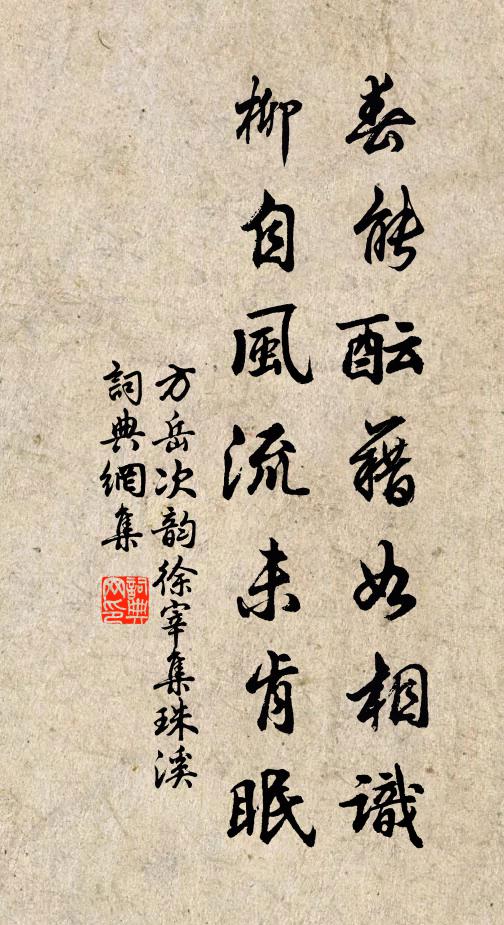 春能酝藉如相識
柳自風流未肯眠
方岳次韵徐宰集珠溪
詞典網集
詞典
网印